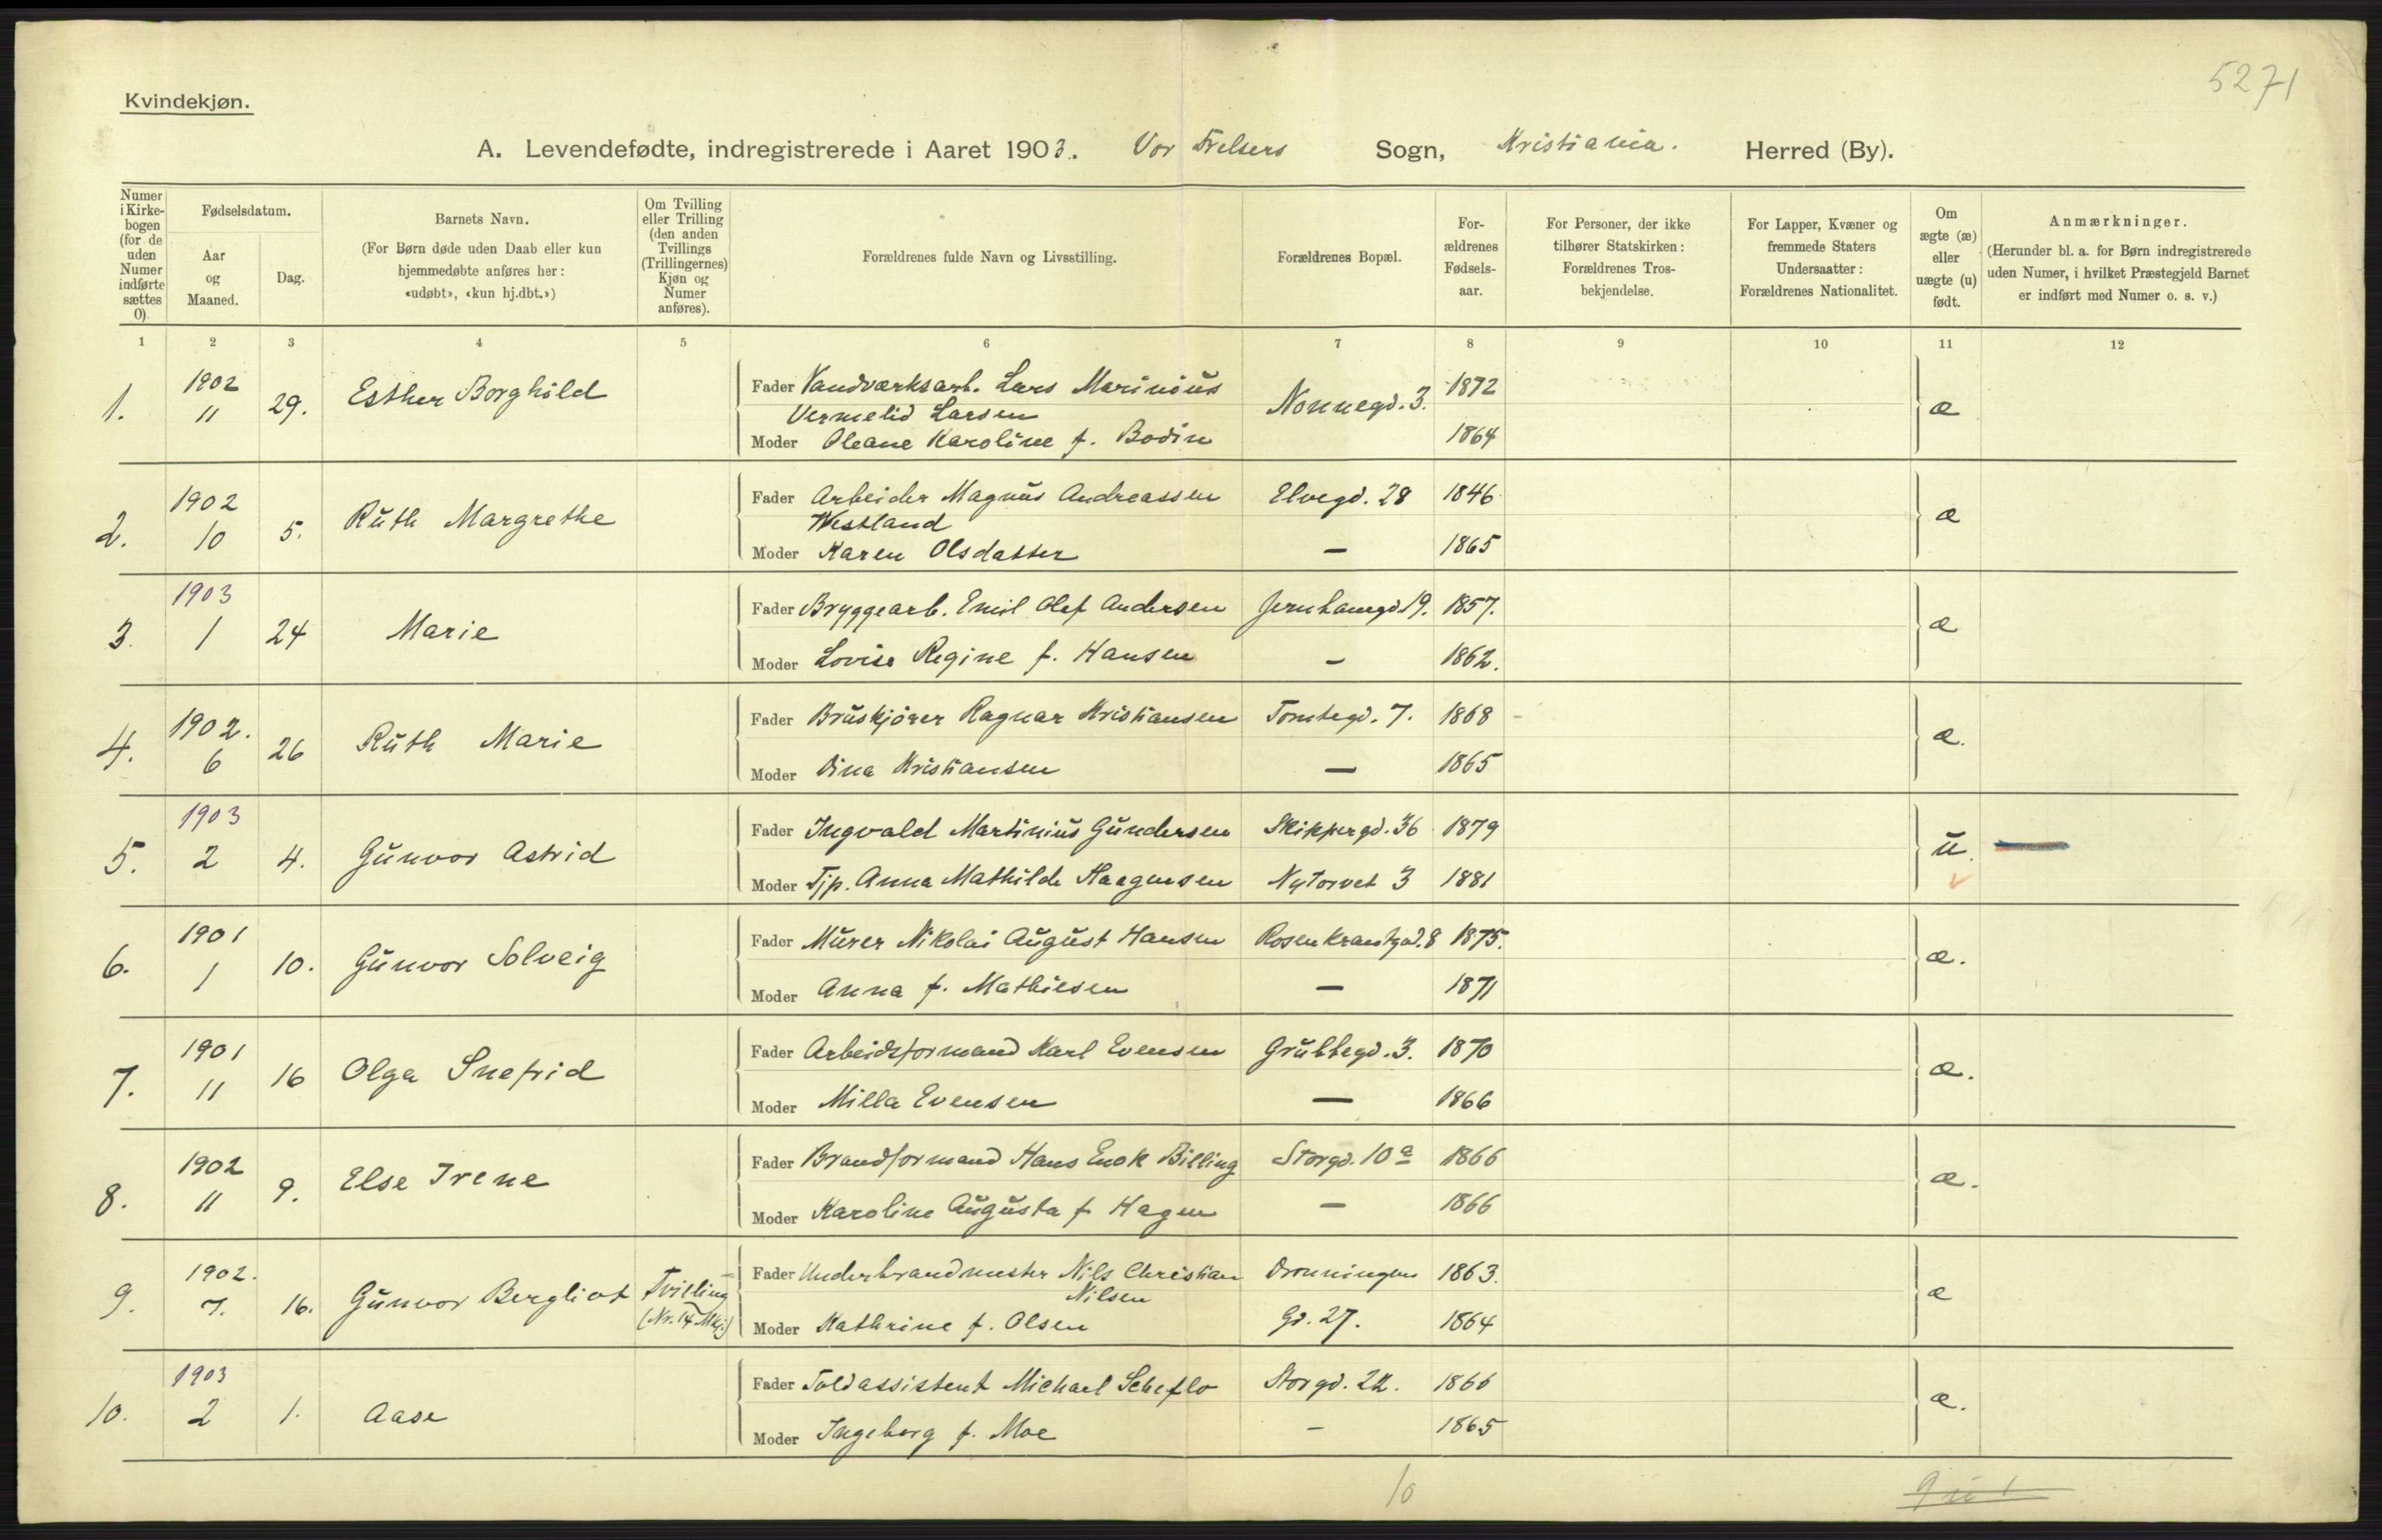 5271
Kvindekjøn.
A. Levendefødte, indregistrerede i Aaret 1903. Vor Frelsers Sogn, Kristiania. Herred (By).
Numer i Kirkebogen (for de uden Numer indførte sættes 0).
Fødselsdatum.
Aar og Maaned.
Dag.
Barnets Navn.
(For Børn døde uden Daab eller kun hjemmedøbte anføres her: «udøbt», «kun hj.dbt.»)
Om Tvilling eller Trilling (den anden Tvillings (Trillingernes) Kjøn og Numer anføres).
Forældrenes fulde Navn og Livsstilling.
Forældrenes Bopæl.
Forældrenes Fødselsaar.
For Personer, der ikke tilhører Statskirken: Forældrenes Trosbekjendelse.
For Lapper, Kvæner og fremmede Staters Undersaatter: Forældrenes Nationalitet.
Om ægte (æ) eller uægte (u) født.
Anmærkninger.
(Herunder bl. a. for Børn indregistrerede uden Numer, i hvilket Præstegjeld Barnet er indført med Numer o. s. v.)
1 2 3 4 5 6 7 8 9 10 11 12
1. 1902 11 29. Esther Borghild
Fader Vandværksarb. Lars Marinius Vermelid Larsen Nonnegd. 3. 1872 æ
Moder Oleane Karoline f. Bodin 1864
2. 1902 10 5. Ruth Margrethe
Fader Arbeider Magnus Andreassen Westland Elvegd. 28 1846 æ
Moder Karen Olsdatter — 1865
3. 1903 1 24 Marie
Fader Bryggearb. Emil Olaf Andersen Jernbanegd 19. 1857. æ
Moder Lovise Regine f. Hansen — 1862.
4. 1902. 6 26 Ruth Marie
Fader Bruskjører Ragnar Kristiansen Tomtegd. 7. 1868 æ.
Moder Dina Kristiansen — 1865
5. 1903 2 4. Gunvor Astrid
Fader Ingvald Martinius Gundersen Skippergd. 36 1879 u.
Moder Tjp. Anna Mathilde Haagensen Nytorvet 3 1881
6. 1901 1 10. Gunvor Solveig
Fader Murer Nikolai August Hansen Rosenkrantzgd. 8 1875. æ.
Moder Anna f. Mathiesen — 1871
7. 1901 11 16 Olga Snefrid
Fader Arbeidsformand Karl Evensen Grubbegd. 3. 1870 æ.
Moder Milla Evensen — 1866
8. 1902 11 9. Else Irene
Fader Brandformand Hans Enok Billing Storgd. 10 a 1866 æ.
Moder Karoline Augusta f. Hagen — 1866
9. 1902. 7. 16. Gunvor Bergliot Tvilling (Nr. 14 Mkj.)
Fader Underbrandmester Nils Christian Nilsen Dronningens 1863. æ
Moder Kathrine f. Olsen Gd. 27. 1864
10. 1903 2 1. Aase
Fader Toldassistent Michael Scheflo Storgd. 22. 1866 æ.
Moder Ingeborg f. Moe — 1865
10